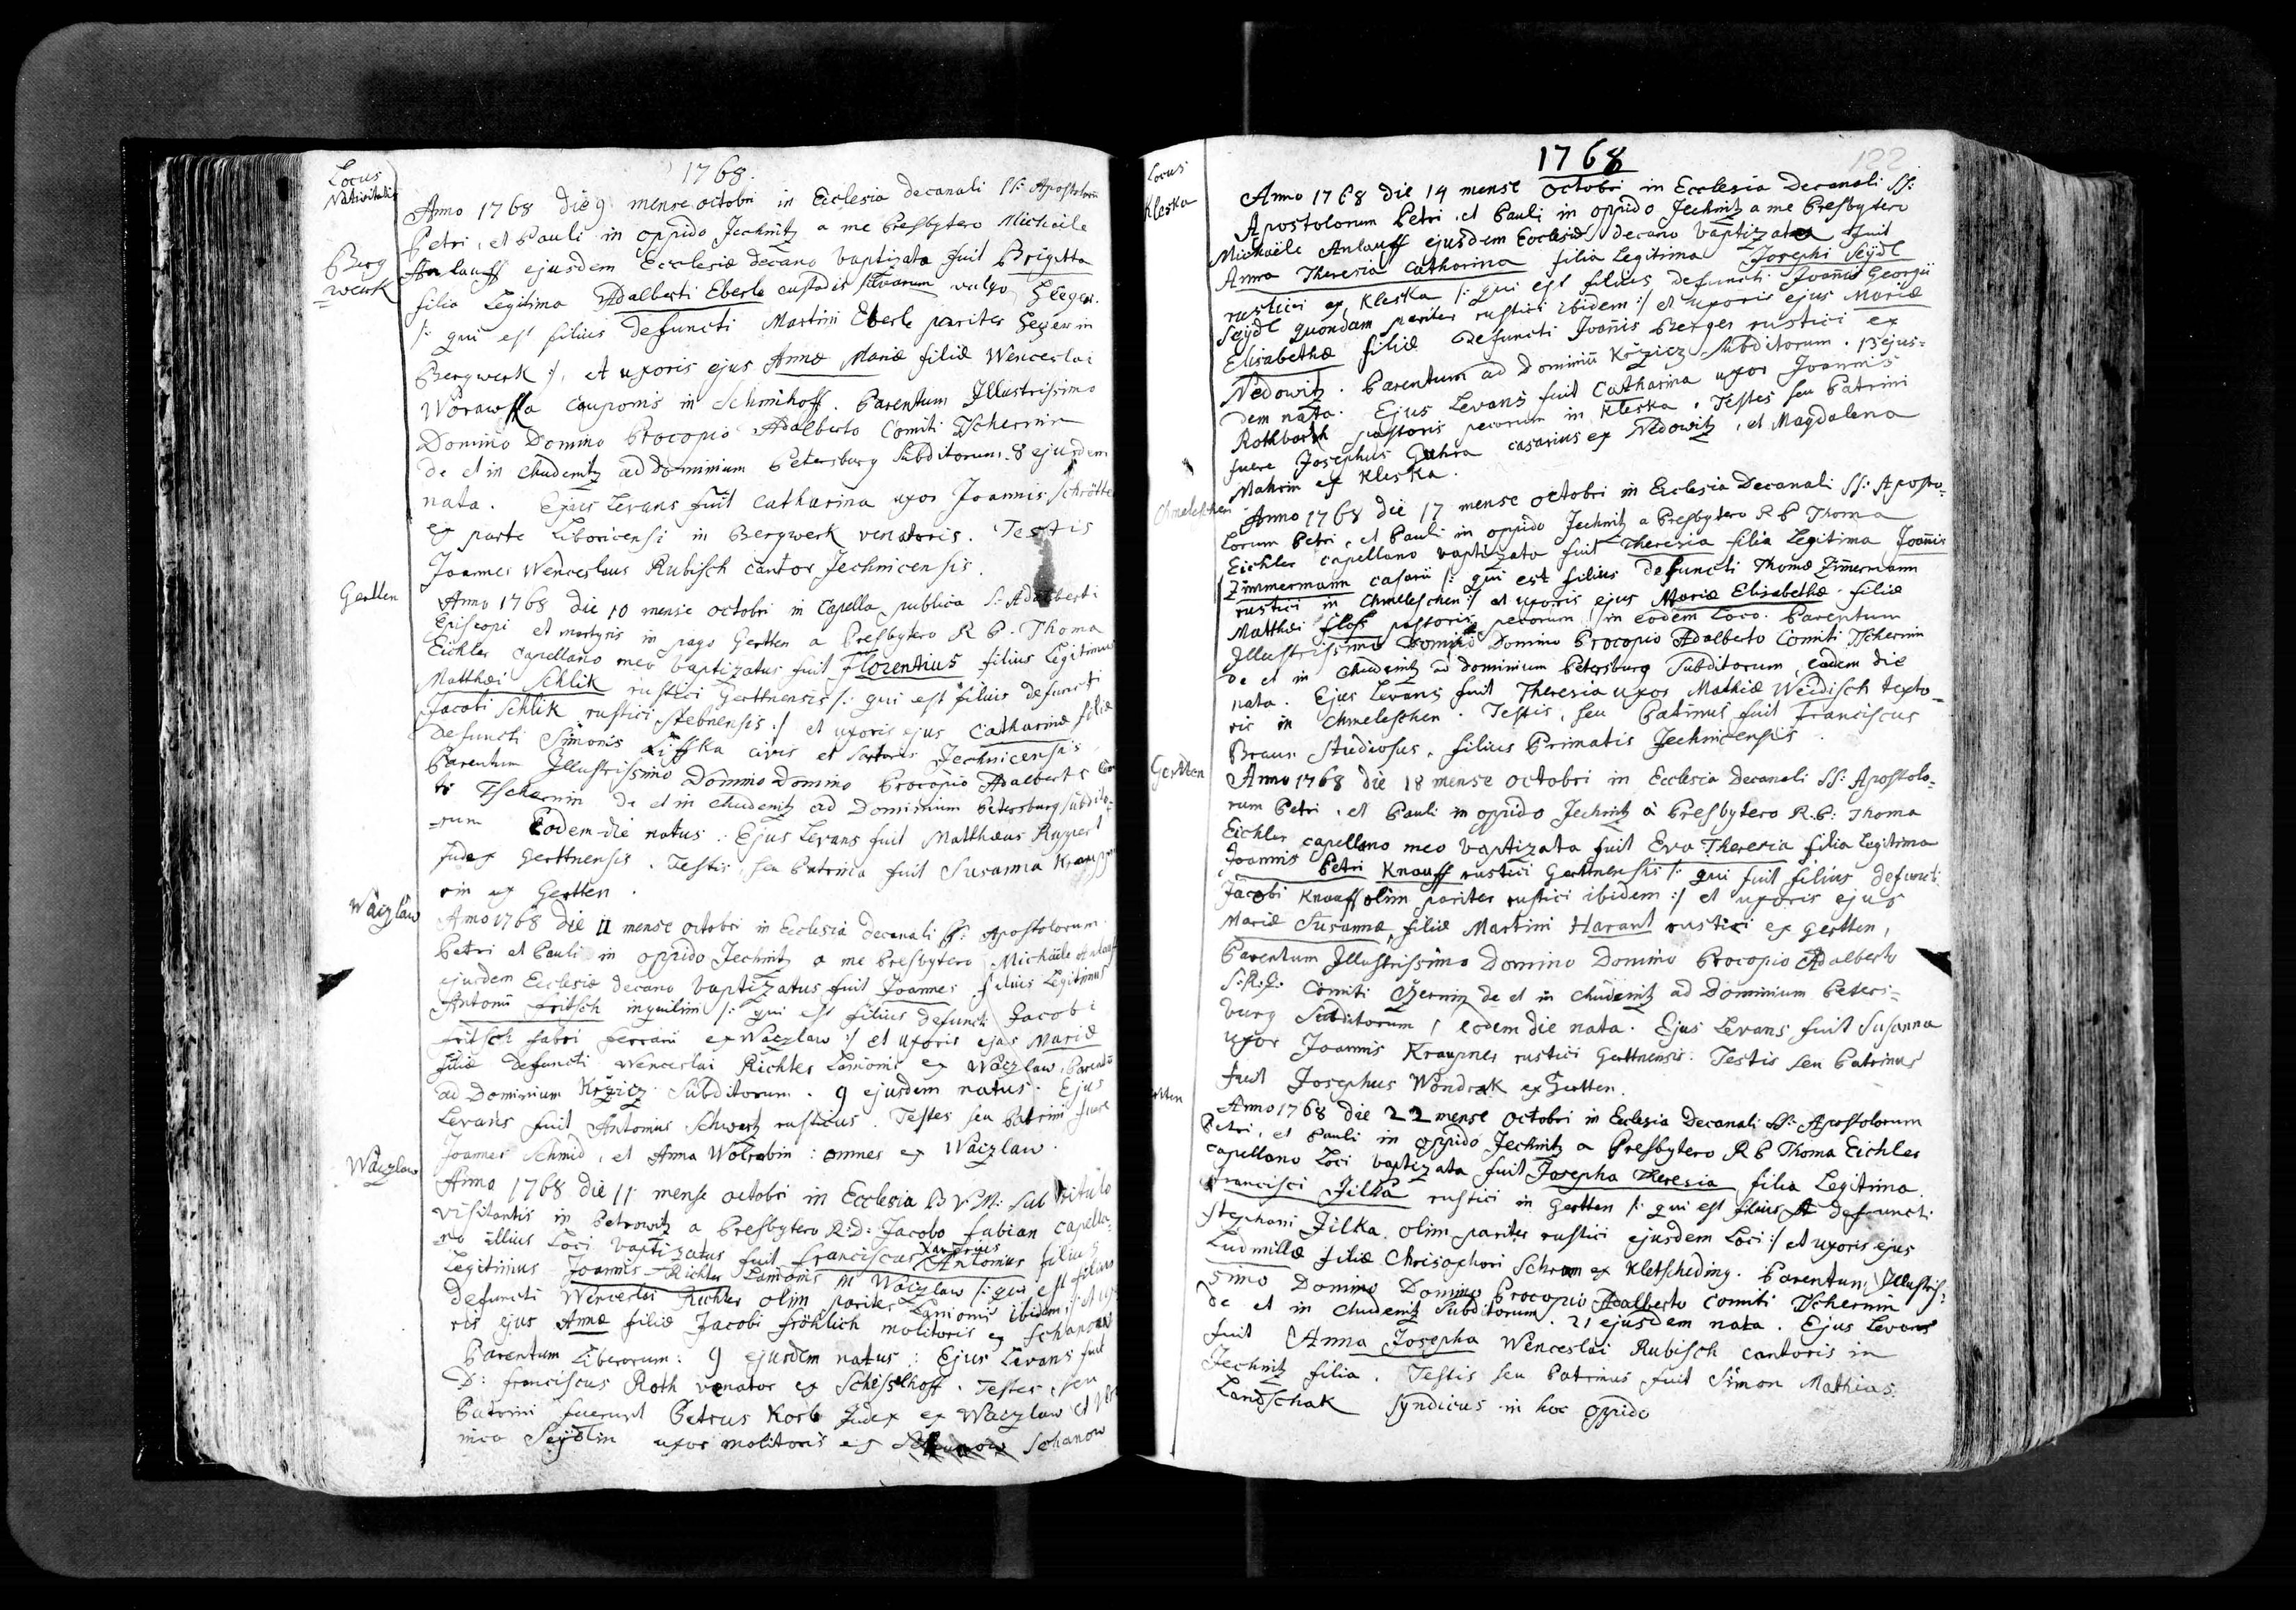 1768.
Locus
Nativitatis
Berg
werk
Anno 1768 die 9 mense octobri in Ecclesia decanali SS: Apostolorum
Petri, et Pauli in oppido Jechnitz a me Presbytero Michaële
Anlauff ejusdem Ecclesiæ decano baptizata fuit Brigitta
filia Legitima Adalberti Eberle custodis silvarum vulgo Heger.
/: qui est filius defuncti Martini Eberle pariter Heger in
Bergwerk :/, et uxoris ejus Annæ Mariæ filiæ Wenceslai
Worawka cauponis in Schmihoff. Parentum Illustrissimo
Domino Domino Procopio Adalberto Comiti Tschernin
de et in Chudenitz ad dominium Petersburg Subditorum. 8 ejusdem
nata. Ejus Levans fuit Catharina uxor Joannis Schrötter
ex parte Liboricensi in Bergwerk venatoris. Testis
Joannes Wenceslaus Rubisch cantor Jechnicensis.
Gertten
Anno 1768 die 10 mense octobri in Capella publica S: Adalberti
Episcopi et martyris in pago Gertten a Presbytero R P. Thoma
Eichler capellano meo baptizatus fuit Florentius filius Legitimus
Matthæi Schlik rustici Gerttnensis /: qui est filius defuncti
Jacobi Schlik rustici Stebnensis :/ et uxoris ejus Catharinæ filiæ
Defuncti Simonis Liffka civis et sartoris Jechnicensis,
Parentum Illustrissimo Domino Domino Procopio Adalberto Comi
ti Tschernin de et in Chudenitz ad Dominium Petersburg subdito-
rum Eodem die natus: Ejus Levans fuit Matthæus Ruppert
Judex Gerttnensis. Testis, seu Patrina fuit Susanna
rin ex Gertten.
Waczlaw
Anno 1768 die 11 mense octobri in Ecclesia decanali SS: Apostolorum
Petri et Pauli in oppido Jechnitz a me Presbytero Michaële Anlauff
ejusdem Ecclesiæ decano baptizatus fuit Joannes filius Legitimus
Antonii Fritsch inquilini /: qui est filius defuncti Jacobi
Fritsch fabri ferrarii ex Waczlaw :/ et uxoris ejus Mariæ
filiæ defuncti Wenceslai Richter Lanionis ex Waczlaw, Parentū
ad Dominium Krzicz Subditorum. 9 ejusdem natus. Ejus
Levans fuit Antonius Schwartz rusticus. Testes seu Patrini fuere
Joannes Schmid, et Anna Wolrabin: omnes ex Waczlaw.
Waczlaw
Anno 1768 die 11 mense octobri in Ecclesia B V M: sub titulo
visitantis in Petrowitz a Presbytero R: D: Jacobo Fabian capella-
no illius Loci baptizatus fuit Franciscus Xaverius Antonius filius
Legitimus Joannis Richter Lanionis in Waczlaw /: qui est filius
defuncti Wenceslai Richter olim pariter Lanionis ibidem :/ et uxo-
ris ejus Annæ filiæ Jacobi Fröhlich molitoris ex Schanow
Parentum Liberorum: 9 ejusdem natus: Ejus Levans fuit
D: Franciscus Roth venator ex Scheiselhoff. Testes, seu
Patrini fuerunt Petrus Korb Judex ex Waczlaw et Vero
nica Seydlin uxor molitoris ex Schanow
1768
122
Locus
Kleska
Anno 1768 die 14 mense octobri in Ecclesia Decanali SS:
Apostolorum Petri, et Pauli in oppido Jechnitz a me Presbytero
Michaële Anlauff ejusdem Ecclesiæ decano baptizata fuit
Anna Theresia Catharina filia Legitima Josephi Seydl
rustici ex Kleska /: qui est filius defuncti Joannis Georgii
Seydl quondam pariter rustici ibidem :/ et uxoris ejus Mariæ
Elisabethæ filiæ Defuncti Joannis Berger rustici ex
Nedowitz. Parentum ad Dominiū Krzicz Subditorum. 13 ejus-
dem nata. Ejus Levans fuit Catharina uxor Joannis
Rothbarth pastoris pecorum in Kleska. Testes seu Patrini
fuere Josephus Guhra casarius ex Nedowitz, et Magdalena
Mahrin ex Kleska.
Chmeleschen
Anno 1768 die 17 mense octobri in Ecclesia Decanali SS: Aposto-
lorum Petri, et Pauli in oppido Jechnitz a Presbytero R P Thoma
Eichler capellano baptizata fuit Theresia filia Legitima Joannis
Zimmermann casarii /: qui est filius defuncti Thomæ Zimmermann
rustici in Chmeleschen :/ et uxoris ejus Mariæ Elisabethæ filiæ
Matthæi Floss pastoris pecorum in eodem Loco. Parentum
Illustrissimo Domino Domino Procopio Adalberto Comiti Tschernin
de et in Chudenitz ad dominium Petersburg Subditorum, eadem die
nata. Ejus Levans fuit Theresia uxor Mathiæ Weidisch texto-
ris in Chmeleschen. Testis, seu Patrinus fuit Franciscus
Braun Studiosus, filius Primatis Jechnicensis.
Gertten
Anno 1768 die 18 mense octobri in Ecclesia decanali SS: Apostolo-
rum Petri, et Pauli in oppido Jechnitz à Presbytero R. P: Thoma
Eichler capellano meo baptizata fuit Eva Theresia filia Legitima
Joannis Petri Knauff rustici Gerttnensis /: qui fuit filius defuncti
Jacobi Knauff olim pariter rustici ibidem :/ et uxoris ejus
Mariæ Susannæ, filiæ Martini Harant rustici ex Gertten,
Parentum Illustrissimo Domino Domino Procopio Adalberto
S: R. J: Comiti Czernin de et in Chudenitz ad Dominium Peters-
burg Subditorum, eodem die nata. Ejus Levans fuit Susanna
uxor Joannis Kraupner rustici Gerttnensis. Testis seu Patrinus
fuit Josephus Wondrak ex Gertten.
rtten
Anno 1768 die 22 mense octobri in Ecclesia Decanali SS: Apostolorum
Petri, et Pauli in oppido Jechnitz a Presbytero R P Thoma Eichler
capellano Loci baptizata fuit Josepha Theresia filia Legitima
Francisci Jilka rustici in Gertten /: qui est filius defuncti
Stephani Jilka olim pariter rustici ejusdem Loci :/ et uxoris ejus
Ludmillæ filiæ Chrisophori Schram ex Kletscheding. Parentum Illustris-
simo Domino Domino Procopio Adalberto Comiti Tschernin
de et in Chudenitz Subditorum. 21 ejusdem nata. Ejus Levans
fuit Anna Josepha Wenceslai Rubisch cantoris in
Jechnitz filia. Testis seu Patrinus fuit Simon Mathias
Landschak Syndicus in hoc oppido